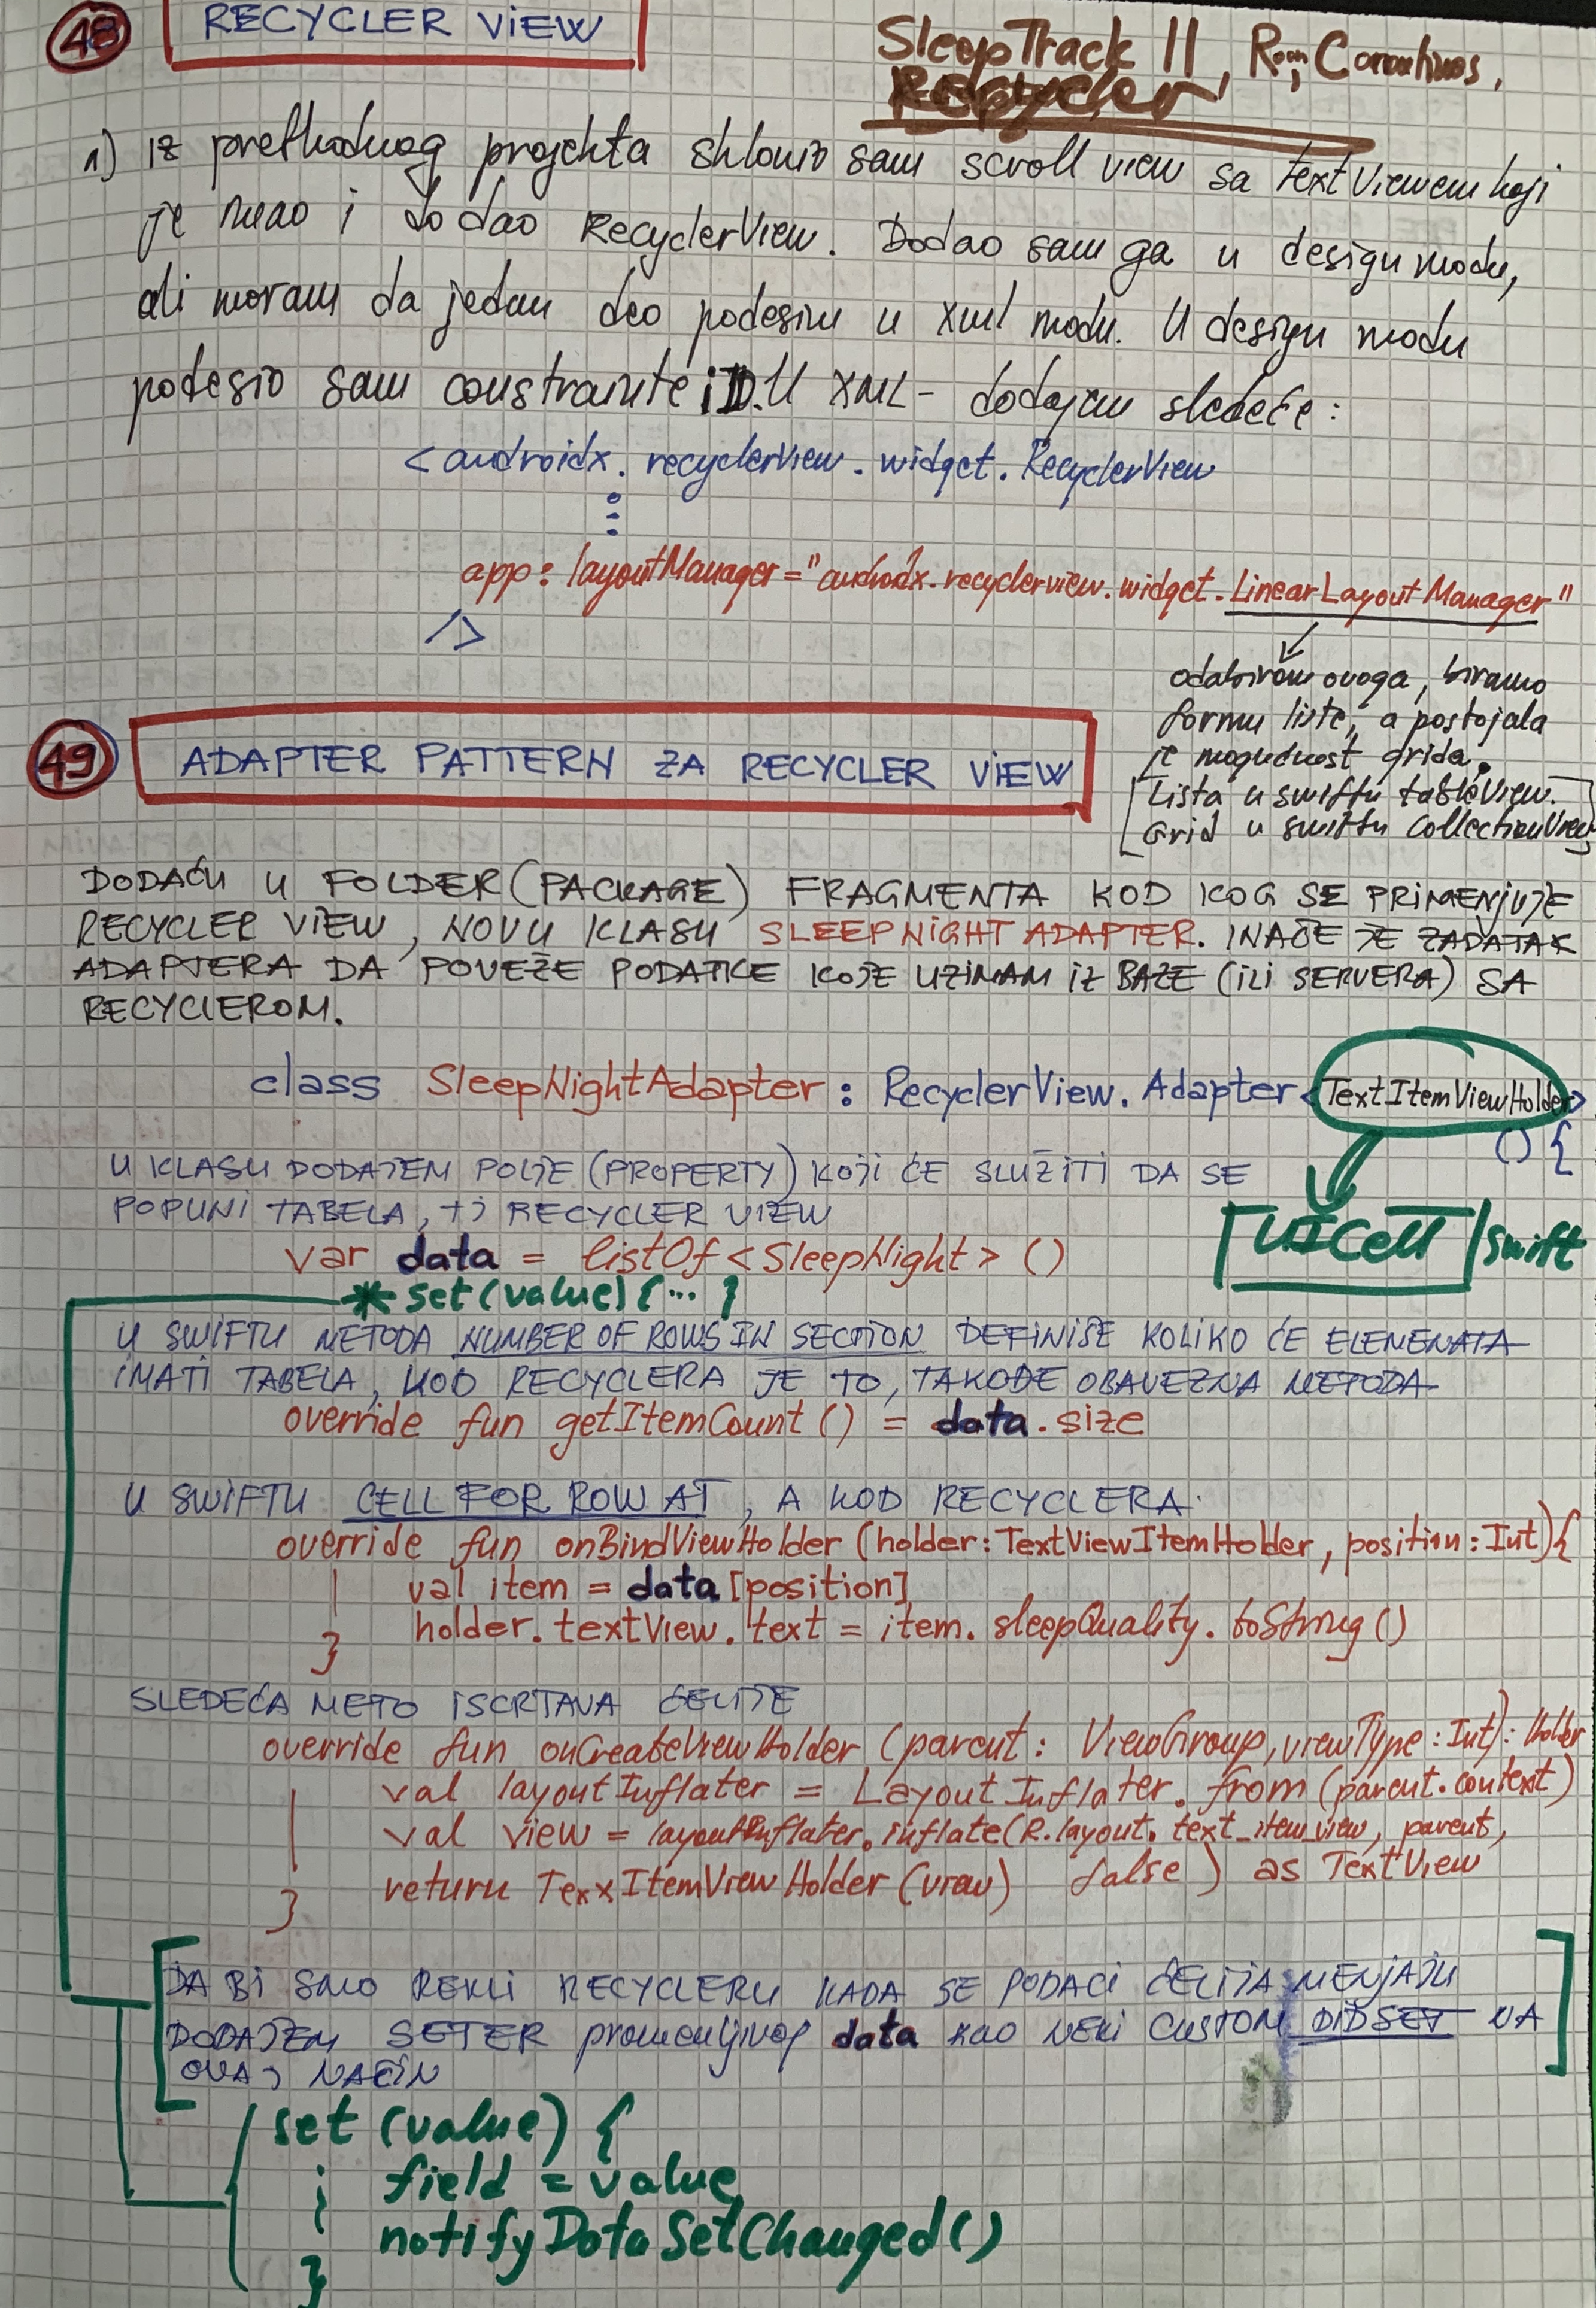 48 RECYCLER VIEW
SleepTrack II, Room, Coroutines,
Recycler
1) iz prethodnog projekta sklonio sam scroll view sa textViewem koji
je imao i dodao RecyclerView. Dodao sam ga u design modu,
ali moram da jedan deo podesim u xml modu. U design modu
podesio sam constrainte i ID. U XML- dodajem sledeće:
<androidx.recyclerview.widget.RecyclerView
⋮
app:layoutManager="androidx.recyclerview.widget.LinearLayoutManager"
/>
odabirom ovoga, biramo
formu liste, a postojala
je mogućnost grida.
[Lista u swiftu tableView.
Grid u swiftu CollectionView]
49 ADAPTER PATTERN ZA RECYCLER VIEW
DODAĆU U FOLDER (PACKAGE) FRAGMENTA KOD KOG SE PRIMENJUJE
RECYCLER VIEW, NOVU KLASU SLEEPNIGHT ADAPTER. INAČE JE ZADATAK
ADAPTERA DA POVEŽE PODATKE KOJE UZIMAM IZ BAZE (ILI SERVERA) SA
RECYCLEROM.
class SleepNightAdapter : RecyclerView.Adapter<TextItemViewHolder>
() {
U KLASU DODAJEM POLJE (PROPERTY) KOJI ĆE SLUŽITI DA SE
POPUNI TABELA, TJ RECYCLER VIEW
UICell | swift
var data = listOf<SleepNight>()
* set(value) { ... }
U SWIFTU METODA NUMBER OF ROWS IN SECTION DEFINIŠE KOLIKO ĆE ELEMENATA
IMATI TABELA, KOD RECYCLERA JE TO, TAKOĐE OBAVEZNA METODA
override fun getItemCount() = data.size
U SWIFTU CELL FOR ROW AT, A KOD RECYCLERA:
override fun onBindViewHolder (holder: TextViewItemHolder, position: Int) {
val item = data[position]
holder.textView.text = item.sleepQuality.toString()
}
SLEDEĆA METO ISCRTAVA ĆELIJE
override fun onCreateViewHolder (parent: ViewGroup, viewType: Int): Holder
val layoutInflater = LayoutInflater.from(parent.context)
val view = layoutInflater.inflate(R.layout.text_item_view, parent,
false) as TextView
return TexxItemViewHolder(view)
}
[DA BI SMO REKLI RECYCLERU KADA SE PODACI ĆELIJA MENJAJU
DODAJEM SETER promenljivoj data KAO NEKI CUSTOM DIDSET NA
OVAJ NAČIN]
set (value) {
field = value
notifyDataSetChanged()
}